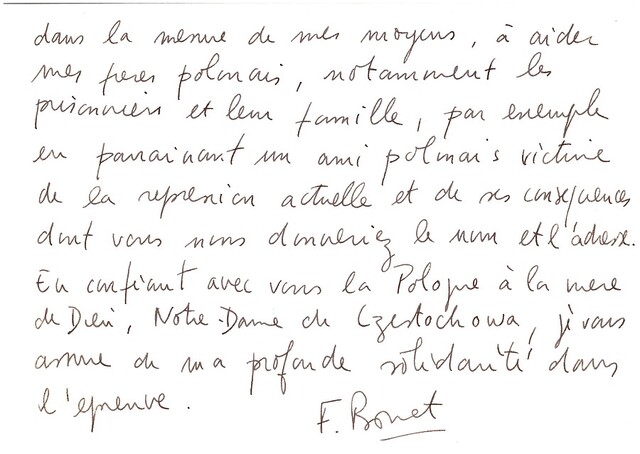 dans la mesure de mes moyens, à aider
mes freres polonais, notamment les
prisonniers et leur famille, par exemple
en parrainant un ami polonais victime
de la repression actuelle et de ses consequences
dont vous nous donneriez le nom et l'adresse.
En confiant avec vous la Pologne à la mere
de Dieu, Notre-Dame de Czestochowa, je vous
assure de ma profonde solidarité dans
l'epreuve.
F. Bonet